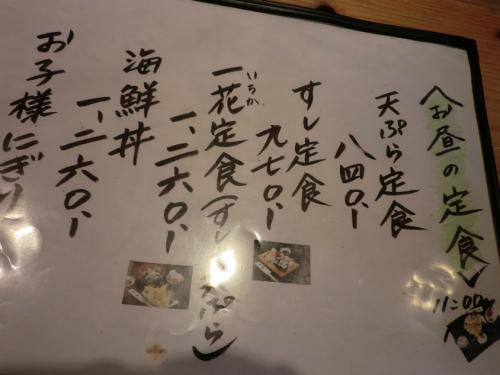 〈お昼の定食〉
11:00〜
天ぷら定食
八四〇、
すし定食
九七〇、
いちか
一花定食(すし
ぷら)
一、二六〇、
海鮮丼
一、二六〇、
お子様にぎり